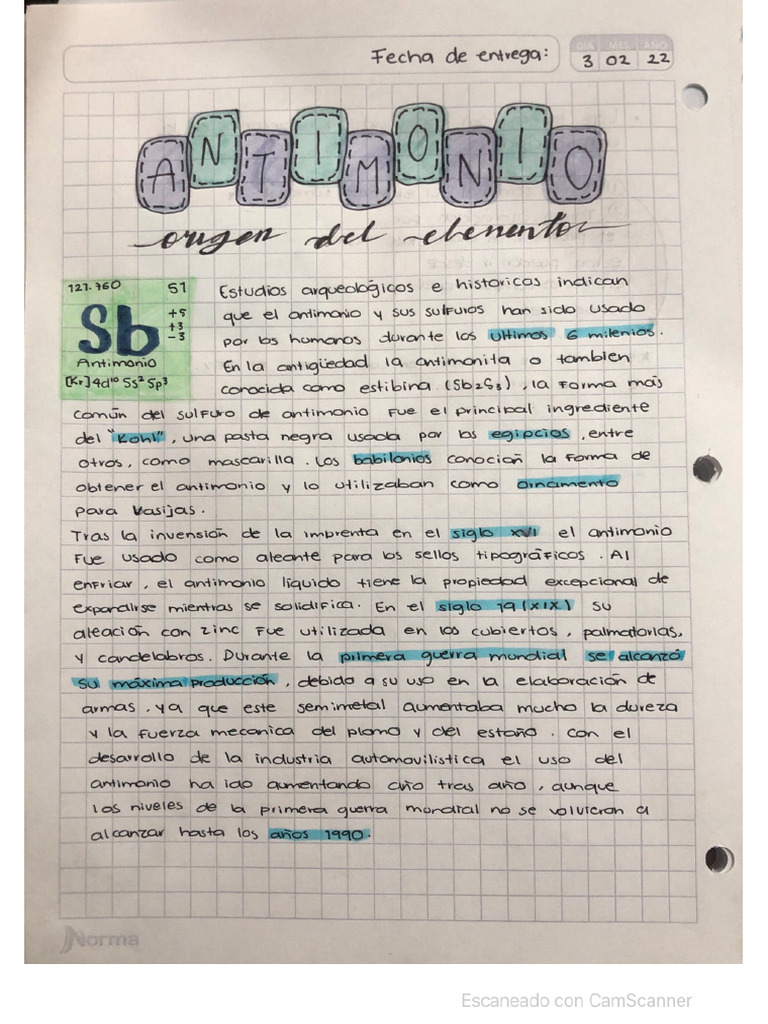 Fecha de entrega:
DIA MES AÑO
3 02 22
ANTIMONIO
origen del elemento
127.760 51
Sb
+5
+3
-3
Antimonio
[Kr]4d¹⁰ 5s² 5p³
Estudios arqueológicos e historicos indican
que el antimonio y sus sulfuros han sido usado
por los humanos durante los ultimos 6 milenios.
En la antigüedad la antimonita o tambien
conocida como estibina (Sb₂S₃), la forma más
común del sulfuro de antimonio fue el principal ingrediente
del "Kohl", una pasta negra usada por los egipcios, entre
otros, como mascarilla. Los babilonios conocian la forma de
obtener el antimonio y lo utilizaban como ornamento
para vasijas.
Tras la invensión de la imprenta en el siglo XVI el antimonio
fue usado como aleante para los sellos tipográficos. Al
enfriar, el antimonio líquido tiene la propiedad excepcional de
expandirse mientras se solidifica. En el siglo 19 (XIX) su
aleación con zinc fue utilizada en los cubiertos, palmatorias,
y candelabros. Durante la primera guerra mundial se alcanzó
su máxima producción, debido a su uso en la elaboración de
armas, ya que este semimetal aumentaba mucho la dureza
y la fuerza mecanica del plomo y del estaño. Con el
desarrollo de la industria automovilistica el uso del
antimonio ha ido aumentando año tras año, aunque
los niveles de la primera guerra mundial no se volvieron a
alcanzar hasta los años 1990.
Norma
Escaneado con CamScanner